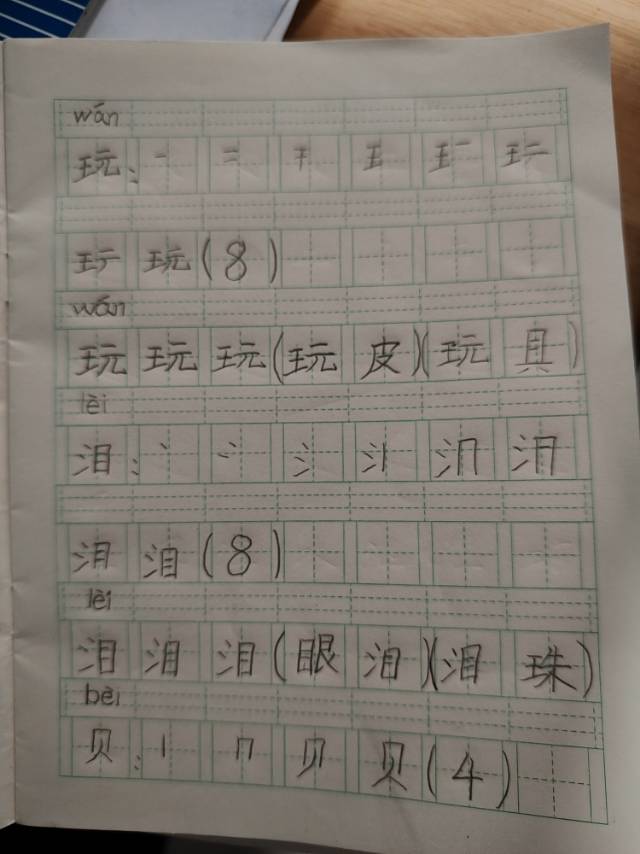 wán
玩：一 二 キ 王 王一 王二
玩 玩(8)
wán
玩 玩 玩(玩皮)(玩具)
lèi
泪：丶 冫 氵 氵丨 氵冂 汨
泪 泪(8)
lèi
泪 泪 泪(眼泪)(泪珠)
bèi
贝：丨 冂 贝 贝(4)